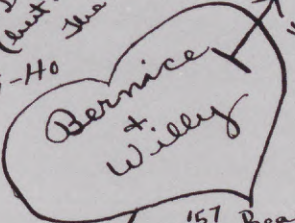 (but
the
-Ho
Bernice
+
Willy
'57